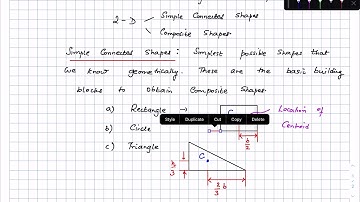 2-D Simple Connected Shapes
Composite Shapes
Simple Connected Shapes: Simplest possible shapes that
we know geometrically. These are the basic building
blocks to obtain Composite Shapes.
a) Rectangle → C Location of
Centroid
Style Duplicate Cut Copy Delete
b) Circle b/2
c) Triangle
C
h/3
2/3 b